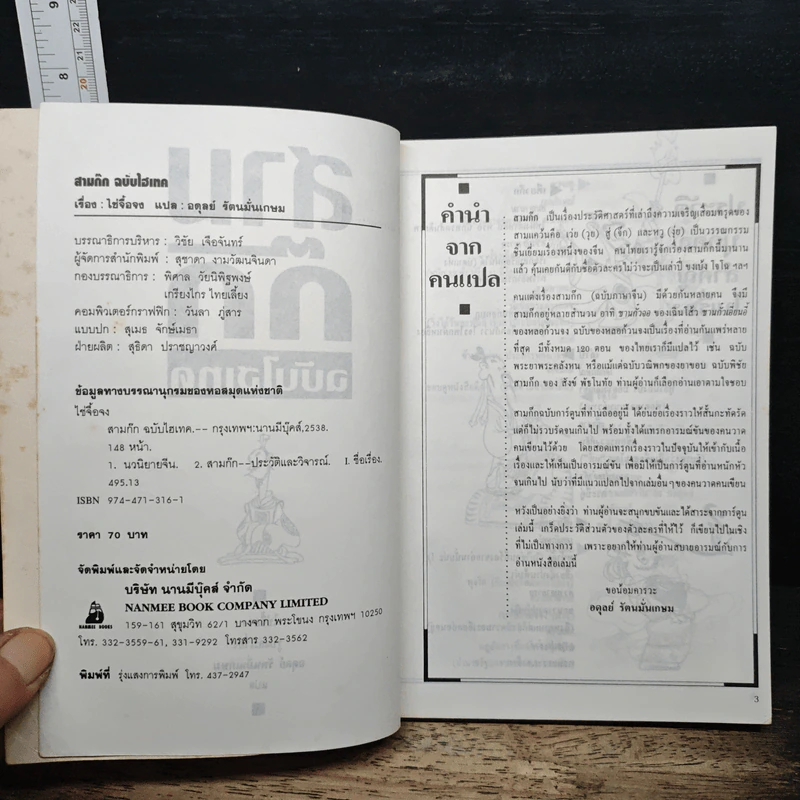 สามก๊ก ฉบับไฮเทค
เรื่อง : ไช่จื้อจง แปล : อดุลย์ รัตนมั่นเกษม
บรรณาธิการบริหาร : วิชัย เจือจันทร์
ผู้จัดการสำนักพิมพ์ : สุชาดา งามวัฒนจินดา
กองบรรณาธิการ : พิศาล วัยนิพิฐพงษ์
เกรียงไกร ไทยเลี้ยง
คอมพิวเตอร์กราฟฟิก : วันลา ภู่สาร
แบบปก : สุเมธ จักษ์เมธา
ฝ่ายผลิต : สุธิดา ปราชญาวงศ์
ข้อมูลทางบรรณานุกรมของหอสมุดแห่งชาติ
ไช่จื้อจง
สามก๊ก ฉบับไฮเทค.-- กรุงเทพฯ:นานมีบุ๊คส์,2538.
148 หน้า.
1. นวนิยายจีน. 2. สามก๊ก--ประวัติและวิจารณ์. I. ชื่อเรื่อง.
495.13
ISBN 974-471-316-1
ราคา 70 บาท
จัดพิมพ์และจัดจำหน่ายโดย
บริษัท นานมีบุ๊คส์ จำกัด
NANMEE BOOK COMPANY LIMITED
NANMEE BOOKS
159-161 สุขุมวิท 62/1 บางจาก พระโขนง กรุงเทพฯ 10250
โทร. 332-3559-61, 331-9292 โทรสาร 332-3562
พิมพ์ที่ รุ่งแสงการพิมพ์ โทร. 437-2947
คำนำ
จาก
คนแปล
สามก๊ก เป็นเรื่องประวัติศาสตร์ที่เล่าถึงความเจริญเสื่อมทรุดของ
สามแคว้นคือ เว่ย (วุย) สู่ (จ๊ก) และหวู (ง่อ) เป็นวรรณกรรม
ชั้นเยี่ยมเรื่องหนึ่งของจีน คนไทยเรารู้จักเรื่องสามก๊กนี้มานาน
แล้ว คุ้นเคยกันดีกับชื่อตัวละครไม่ว่าจะเป็นเล่าปี่ ขงเบ้ง โจโฉ ฯลฯ
คนแต่งเรื่องสามก๊ก (ฉบับภาษาจีน) มีด้วยกันหลายคน จึงมี
สามก๊กอยู่หลายสำนวน อาทิ ซานกั๋วจื้อ ของเฉินโส้ว ซานกั๋วเอี่ยนอี้
ของหลอก้วนจง ฉบับของหลอก้วนจงเป็นเรื่องที่อ่านกันแพร่หลาย
ที่สุด มีทั้งหมด 120 ตอน ของไทยเราก็มีแปลไว้ เช่น ฉบับ
พระยาพระคลังหน หรือแม้แต่ฉบับวณิพกของยาขอบ ฉบับพิชัย
สามก๊ก ของ สังข์ พัธโนทัย ท่านผู้อ่านก็เลือกอ่านเอาตามใจชอบ
สามก๊กฉบับการ์ตูนที่ท่านถืออยู่นี้ ได้ย่นย่อเรื่องราวให้สั้นกะทัดรัด
แต่ก็ไม่รวบรัดจนเกินไป พร้อมทั้งได้แทรกอารมณ์ขันของคนวาด
คนเขียนไว้ด้วย โดยสอดแทรกเรื่องราวในปัจจุบันให้เข้ากับเนื้อ
เรื่องและให้เห็นเป็นอารมณ์ขัน เพื่อมิให้เป็นการ์ตูนที่อ่านหนักหัว
จนเกินไป นับว่าที่มีแนวแปลกไปจากเล่มอื่นๆ ของคนวาดคนเขียน
หวังเป็นอย่างยิ่งว่า ท่านผู้อ่านจะสนุกขบขันและได้สาระจากการ์ตูน
เล่มนี้ เกร็ดประวัติส่วนตัวของตัวละครที่ให้ไว้ ก็เขียนไปในเชิง
ที่ไม่เป็นทางการ เพราะอยากให้ท่านผู้อ่านสบายอารมณ์กับการ
อ่านหนังสือเล่มนี้
ขอน้อมคารวะ
อดุลย์ รัตนมั่นเกษม
3